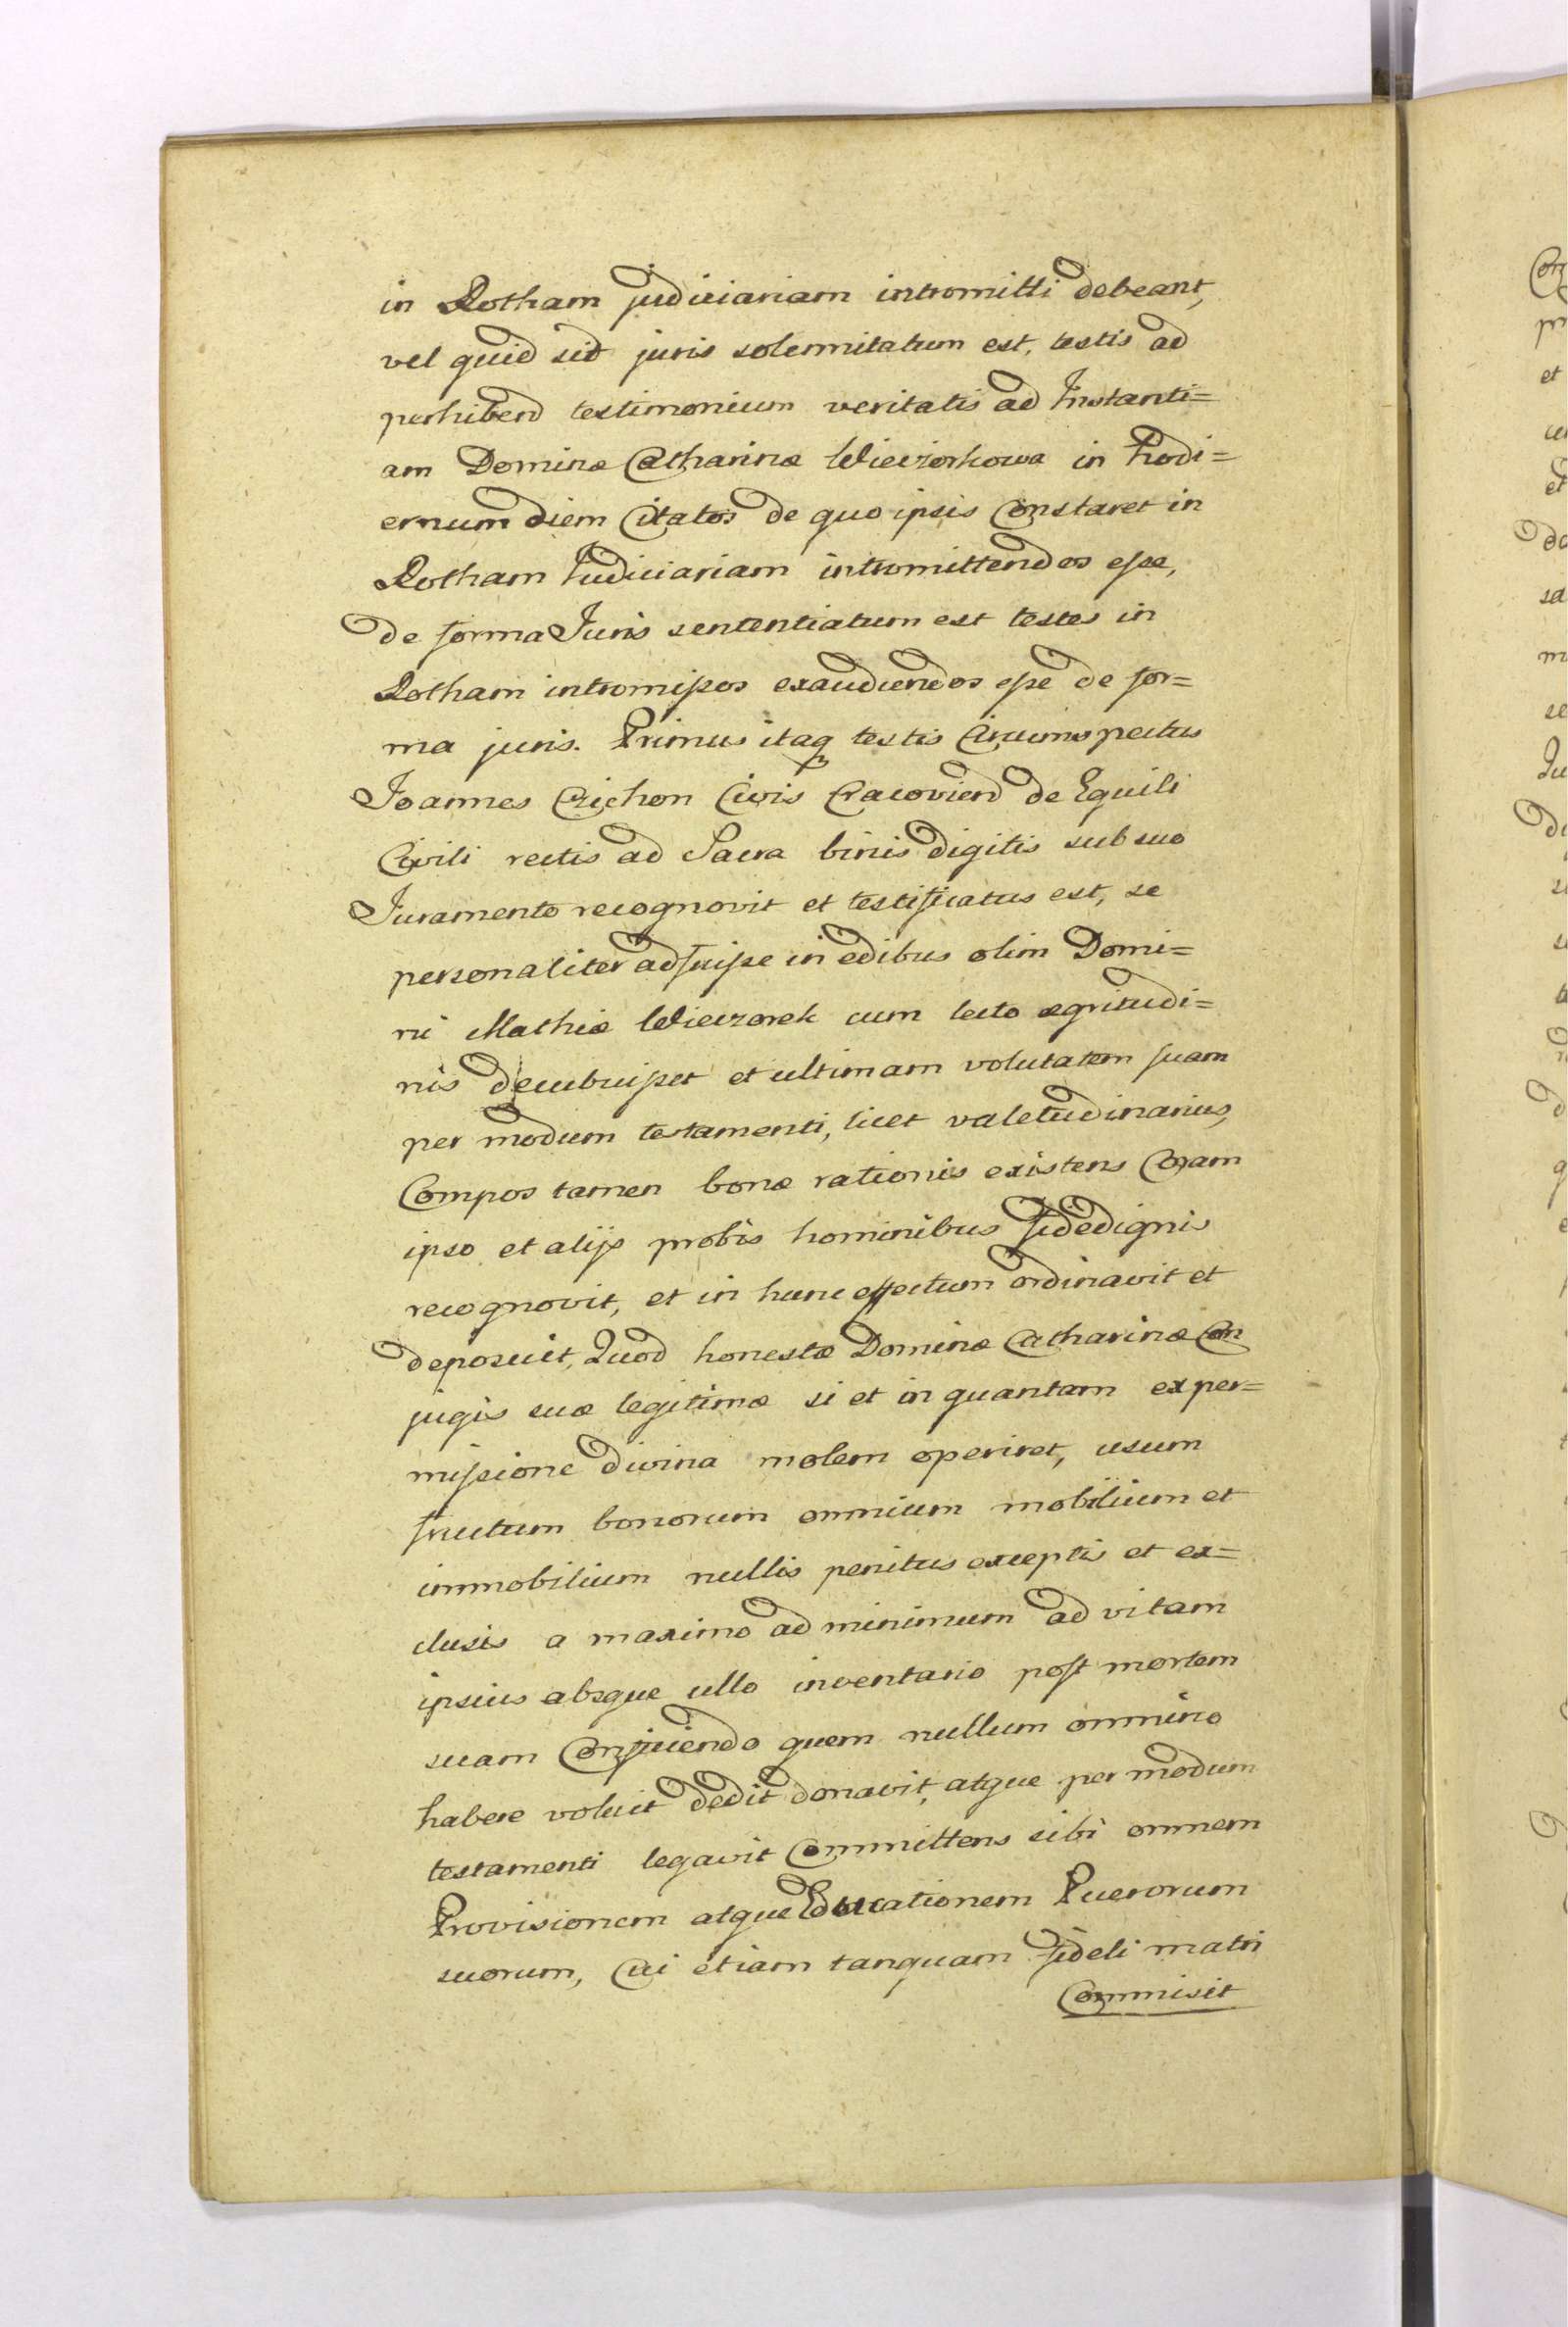 in Rotham judiciariam intromitti debeant,
vel quid sid juris solennitatum est, testis ad
perhibend testimonium veritatis ad Instanti=
am Dominæ Catharinæ Wieczorkowa in hodi=
ernum diem Citatos de quo ipsis Constaret in
Rotham Iudiciariam intromittendos eſse,
de forma Iuris sententiatum est testes in
Rotham intromiſsos exaudiendos eſse de for=
ma juris. Primus itaq testis Circumspectus
Joannes Czichon Civis Cracoviend de Equili
Civili rectis ad Sacra binis digitis sub suo
Juramento recognovit et testificatus est, se
personaliter adfuiſse in edibus olim Domi=
ni Mathiæ Wieczorek cum lecto ægritudi=
nis decubuiſset et ultimam volutatem suam
per modum testamenti, licet valetudinarius,
Compos tamen bonæ rationis existens Coram
ipso et alijs probis hominibus fidedignis
recognovit, et in hunc effectum ordinavit et
deposuit, Quod honestæ Dominæ Catharinæ Con
jugis suæ legitimæ si et in quantam ex per=
miſsione divina molem operiret, usum
fructum bonorum omnium mobilium et
immobilium nullis penitus exceptis et ex=
clusis a maximo ad minimum ad vitam
ipsius absque ullo inventario poſt mortem
suam Conficiendo quem nullum omnino
habere voluit dedit donavit, atque per modum
testamenti legavit Committens sibi omnem
Provisionem atque Educationem Puerorum
suorum, Cui etiam tanquam fideli matri
Commisit